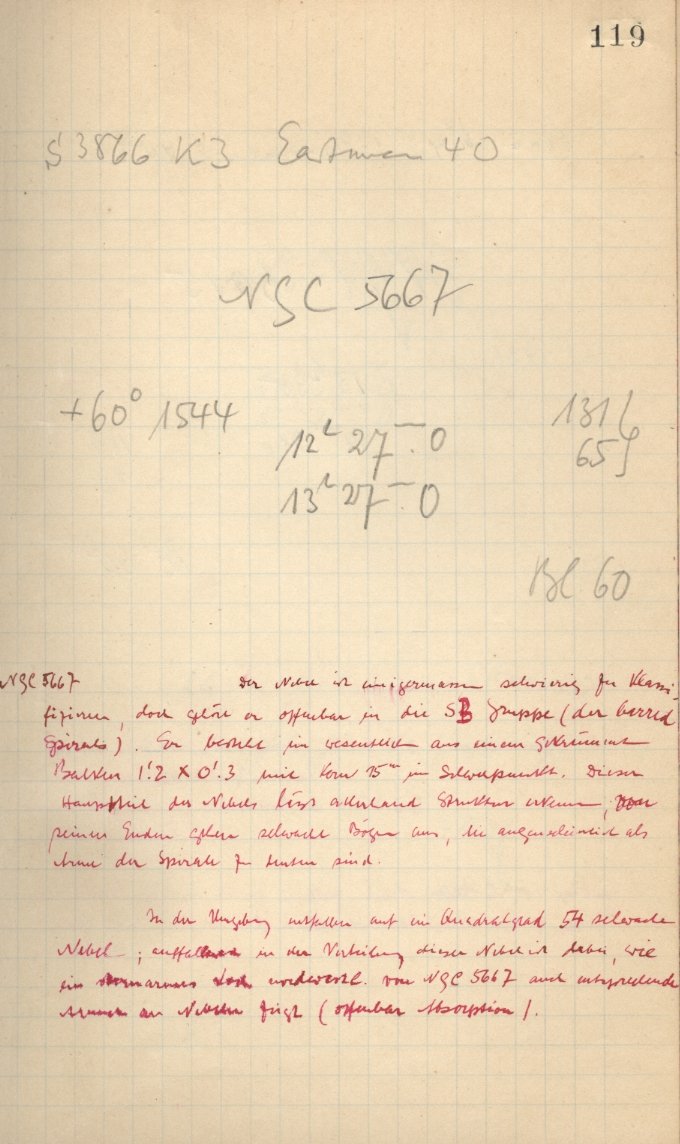 119
S 3866 K3 Eastman 40
NGC 5667
+60° 1544
12h 27m.0
13h 27m.0
131
65
Bl 60
NGC 5667 Der Nebel ist einigermassen schwierig zu klassi-
fizieren, doch gehört er offenbar in die SB Gruppe (der barred
Spirals). Er besteht im wesentlichen aus einem gekrümmten
Balken 1!2 x 0!3 mit Kern 15m im Schwerpunkt. Dieser
Hauptteil des Nebels lässt allerhand Struktur erkennen, von
seinen Enden gehen schwache Bögen aus, die augenscheinlich als
Arme der Spirale zu deuten sind.
In der Umgebung entfallen auf ein Quadratgrad 54 schwache
Nebel; in der Verteilung dieser Nebel ist dabei, wie
ein nordwestl. von NGC 5667 auch entsprechende
an Nebeln zeigt (offenbar Absorption).